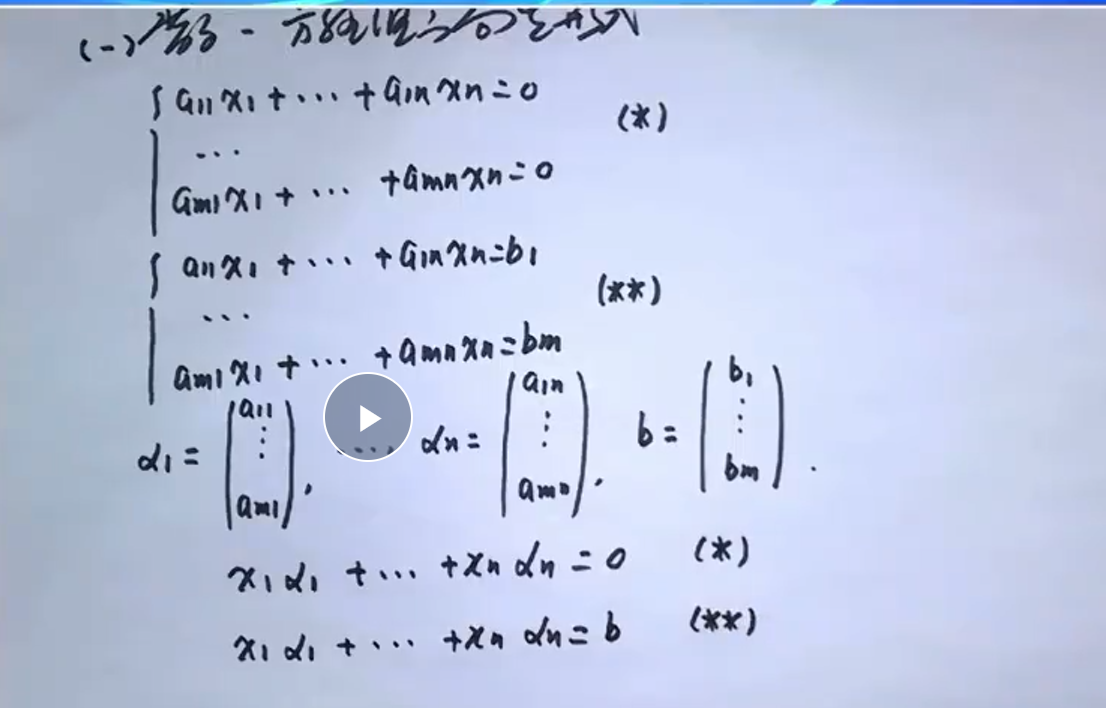 (一) 背景 - 方程组三个向量形式
a₁₁x₁ + ⋯ + a₁ₙxₙ = 0
(*)
⋯
aₘ₁x₁ + ⋯ + aₘₙxₙ = 0
a₁₁x₁ + ⋯ + a₁ₙxₙ = b₁
(**)
⋯
aₘ₁x₁ + ⋯ + aₘₙxₙ = bₘ
α₁ = (a₁₁ ⋮ aₘ₁), ⋯ αₙ = (a₁ₙ ⋮ aₘₙ), b = (b₁ ⋮ bₘ).
x₁α₁ + ⋯ + xₙαₙ = 0 (*)
x₁α₁ + ⋯ + xₙαₙ = b (**)